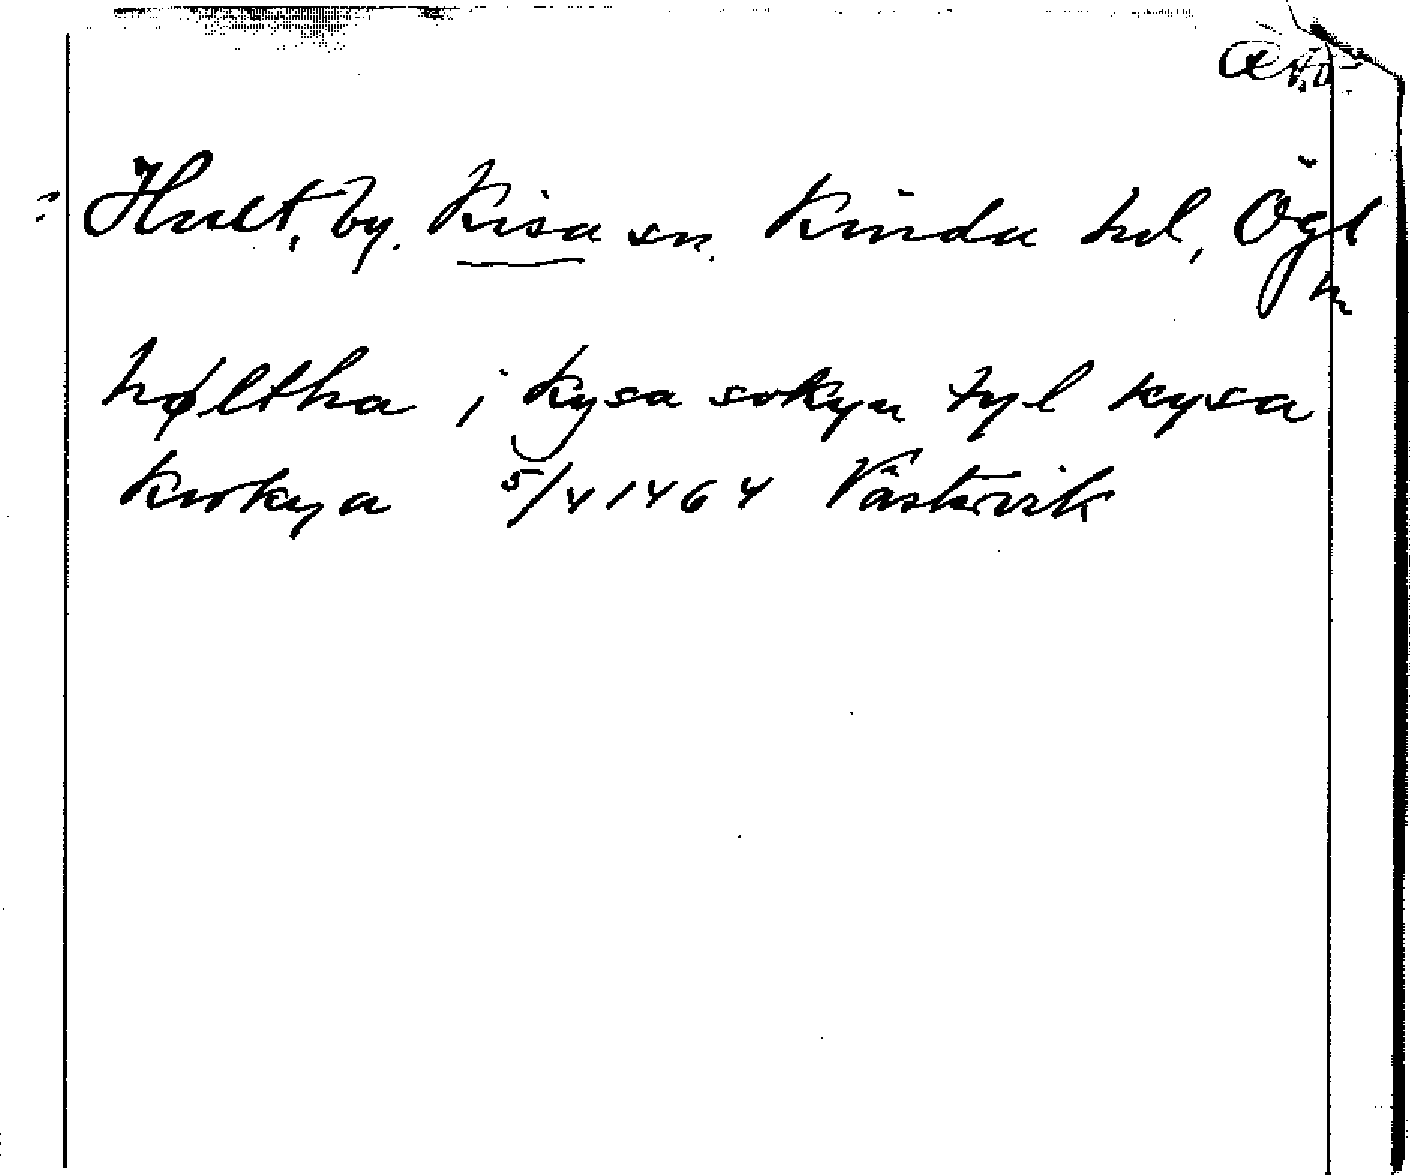 Hult, by. Kisa sn. Kinda hd, Ögl
høltha i kysa sokyn tyl kysa
kyrkya 5/4 1464 Västervik